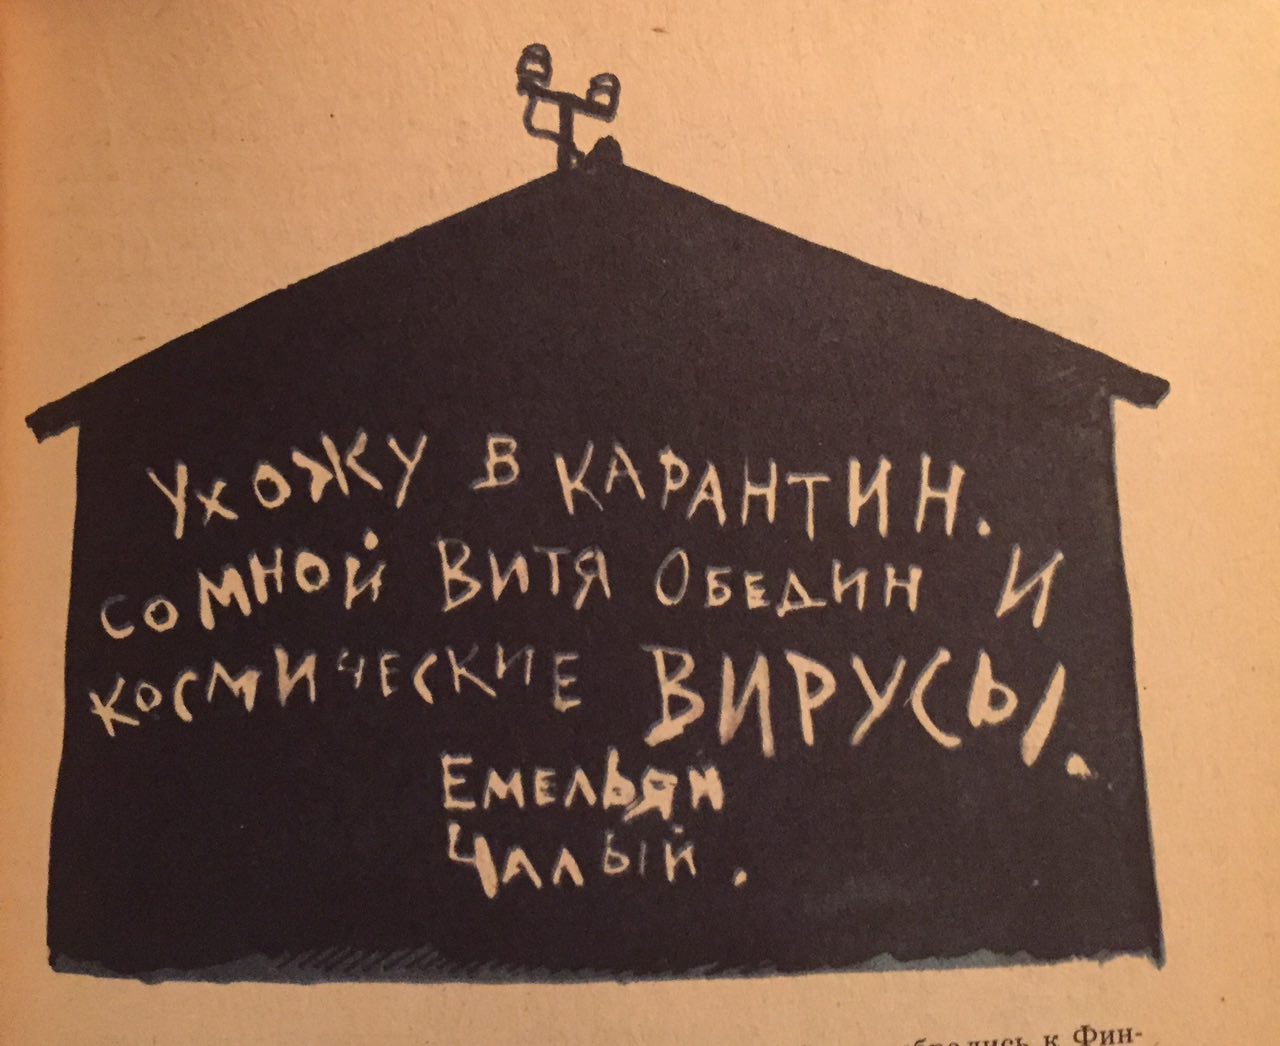 Ухожу в карантин.
со мной Витя Обедин и
космические ВИРУСЫ.
Емельян
Чалый.
к Фин-